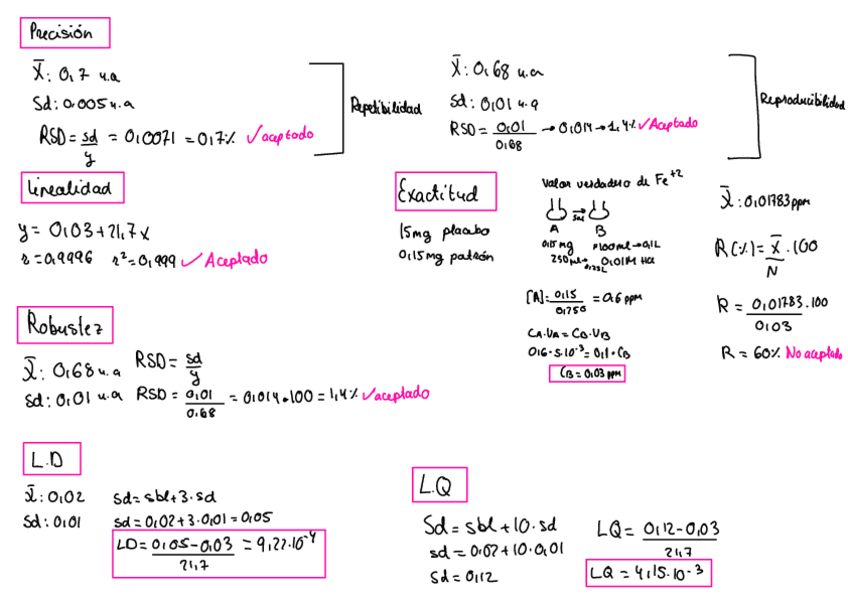 Precisión
X̄: 0,7 u.a
Sd: 0.005 u.a
RSD = sd/y = 0,0071 = 0,7% ✓aceptado
Repetibilidad
X̄: 0,68 u.a
Sd: 0,01 u.a
RSD = 0,01/0,68 → 0,014 → 1,4% ✓Aceptado
Reproducibilidad
Linealidad
y = 0,03 + 21,7x
r = 0,9996 r² = 0,999 ✓ Aceptado
Exactitud
15mg placebo
0,15mg patrón
Valor verdadero de Fe⁺²
5ml
A B
0,15 mg 100ml → 0,1L
250 ml → 0,25L 0,01M HCl
[A] = 0,15/0,250 = 0,6 ppm
CA·VA = CB·VB
0,6·5·10⁻³ = 0,1·CB
CB = 0,03 ppm
X̄: 0,01783 ppm
R(%) = X̄/N · 100
R = 0,01783·100/0,03
R = 60% No aceptado
Robustez
X̄: 0,68 u.a RSD = sd/y
sd: 0,01 u.a RSD = 0,01/0,68 = 0,014·100 = 1,4% ✓aceptado
L.D
X̄: 0,02 Sd = sbl + 3·sd
Sd: 0,01 sd = 0,02 + 3·0,01 = 0,05
LD = 0,05 - 0,03/21,7 = 9,22·10⁻⁴
L.Q
Sd = sbl + 10·sd
sd = 0,02 + 10·0,01
Sd = 0,12
LQ = 0,12 - 0,03/21,7
LQ = 4,15·10⁻³